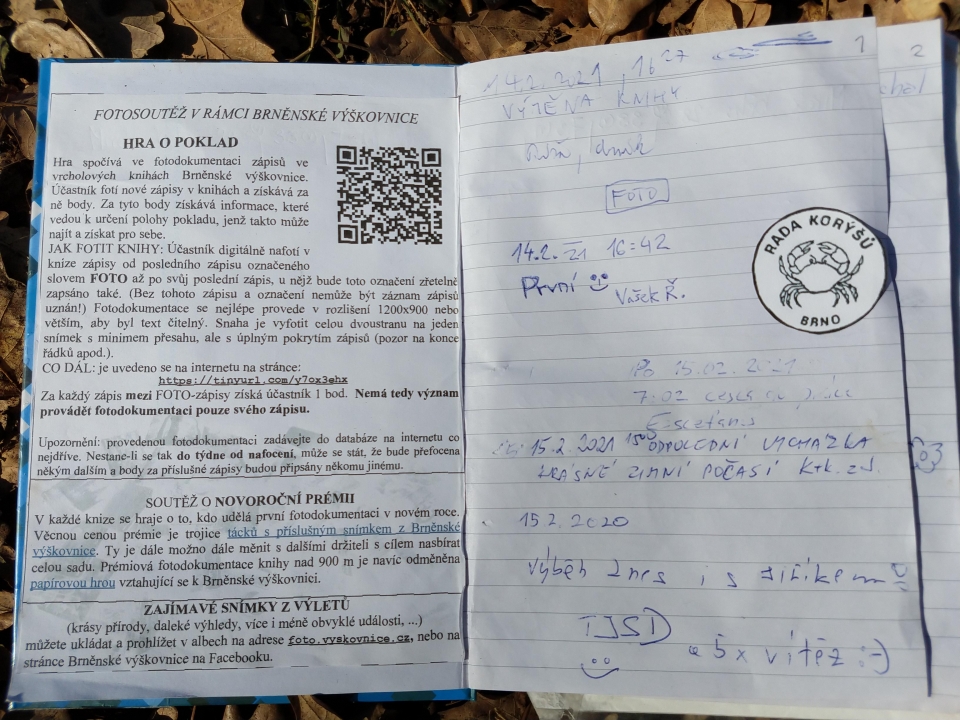 FOTOSOUTĚŽ V RÁMCI BRNĚNSKÉ VÝŠKOVNICE
HRA O POKLAD
Hra spočívá ve fotodokumentaci zápisů ve
vrcholových knihách Brněnské výškovnice.
Účastník fotí nové zápisy v knihách a získává za
ně body. Za tyto body získává informace, které
vedou k určení polohy pokladu, jenž takto může
najít a získat pro sebe.
JAK FOTIT KNIHY: Účastník digitálně nafotí v
knize zápisy od posledního zápisu označeného
slovem FOTO až po svůj poslední zápis, u nějž bude toto označení zřetelně
zapsáno také. (Bez tohoto zápisu a označení nemůže být záznam zápisů
uznán!) Fotodokumentace se nejlépe provede v rozlišení 1200x900 nebo
větším, aby byl text čitelný. Snaha je vyfotit celou dvoustranu na jeden
snímek s minimem přesahu, ale s úplným pokrytím zápisů (pozor na konce
řádků apod.).
CO DÁL: je uvedeno se na internetu na stránce:
https://tinyurl.com/y7ox3ehx
Za každý zápis mezi FOTO-zápisy získá účastník 1 bod. Nemá tedy význam
provádět fotodokumentaci pouze svého zápisu.
Upozornění: provedenou fotodokumentaci zadávejte do databáze na internetu co
nejdříve. Nestane-li se tak do týdne od nafocení, může se stát, že bude přefocena
někým dalším a body za příslušné zápisy budou připsány někomu jinému.
SOUTĚŽ O NOVOROČNÍ PRÉMII
V každé knize se hraje o to, kdo udělá první fotodokumentaci v novém roce.
Věcnou cenou prémie je trojice tácků s příslušným snímkem z Brněnské
výškovnice. Ty je dále možno dále měnit s dalšími držiteli s cílem nasbírat
celou sadu. Prémiová fotodokumentace knihy nad 900 m je navíc odměněna
papírovou hrou vztahující se k Brněnské výškovnici.
ZAJÍMAVÉ SNÍMKY Z VÝLETŮ
(krásy přírody, daleké výhledy, více i méně obvyklé události, ...)
můžete ukládat a prohlížet v albech na adrese foto.vyskovnice.cz, nebo na
stránce Brněnské výškovnice na Facebooku.
1
14.2.2021, 16 27
VÝMĚNA KNIHY
FOTO
14.2. 21 16:42
První
Vašek Ř.
RADA KORÝŠŮ
BRNO
Po 15.02.2021
7:02 cesta do práce
15.2.2021 15 00 ODPOLEDNÍ VYCHÁZKA
KRÁSNÉ ZIMNÍ POČASÍ
15.2.2020
Výběh dnes i s
TJSD
a 5x vítěz :-)
2